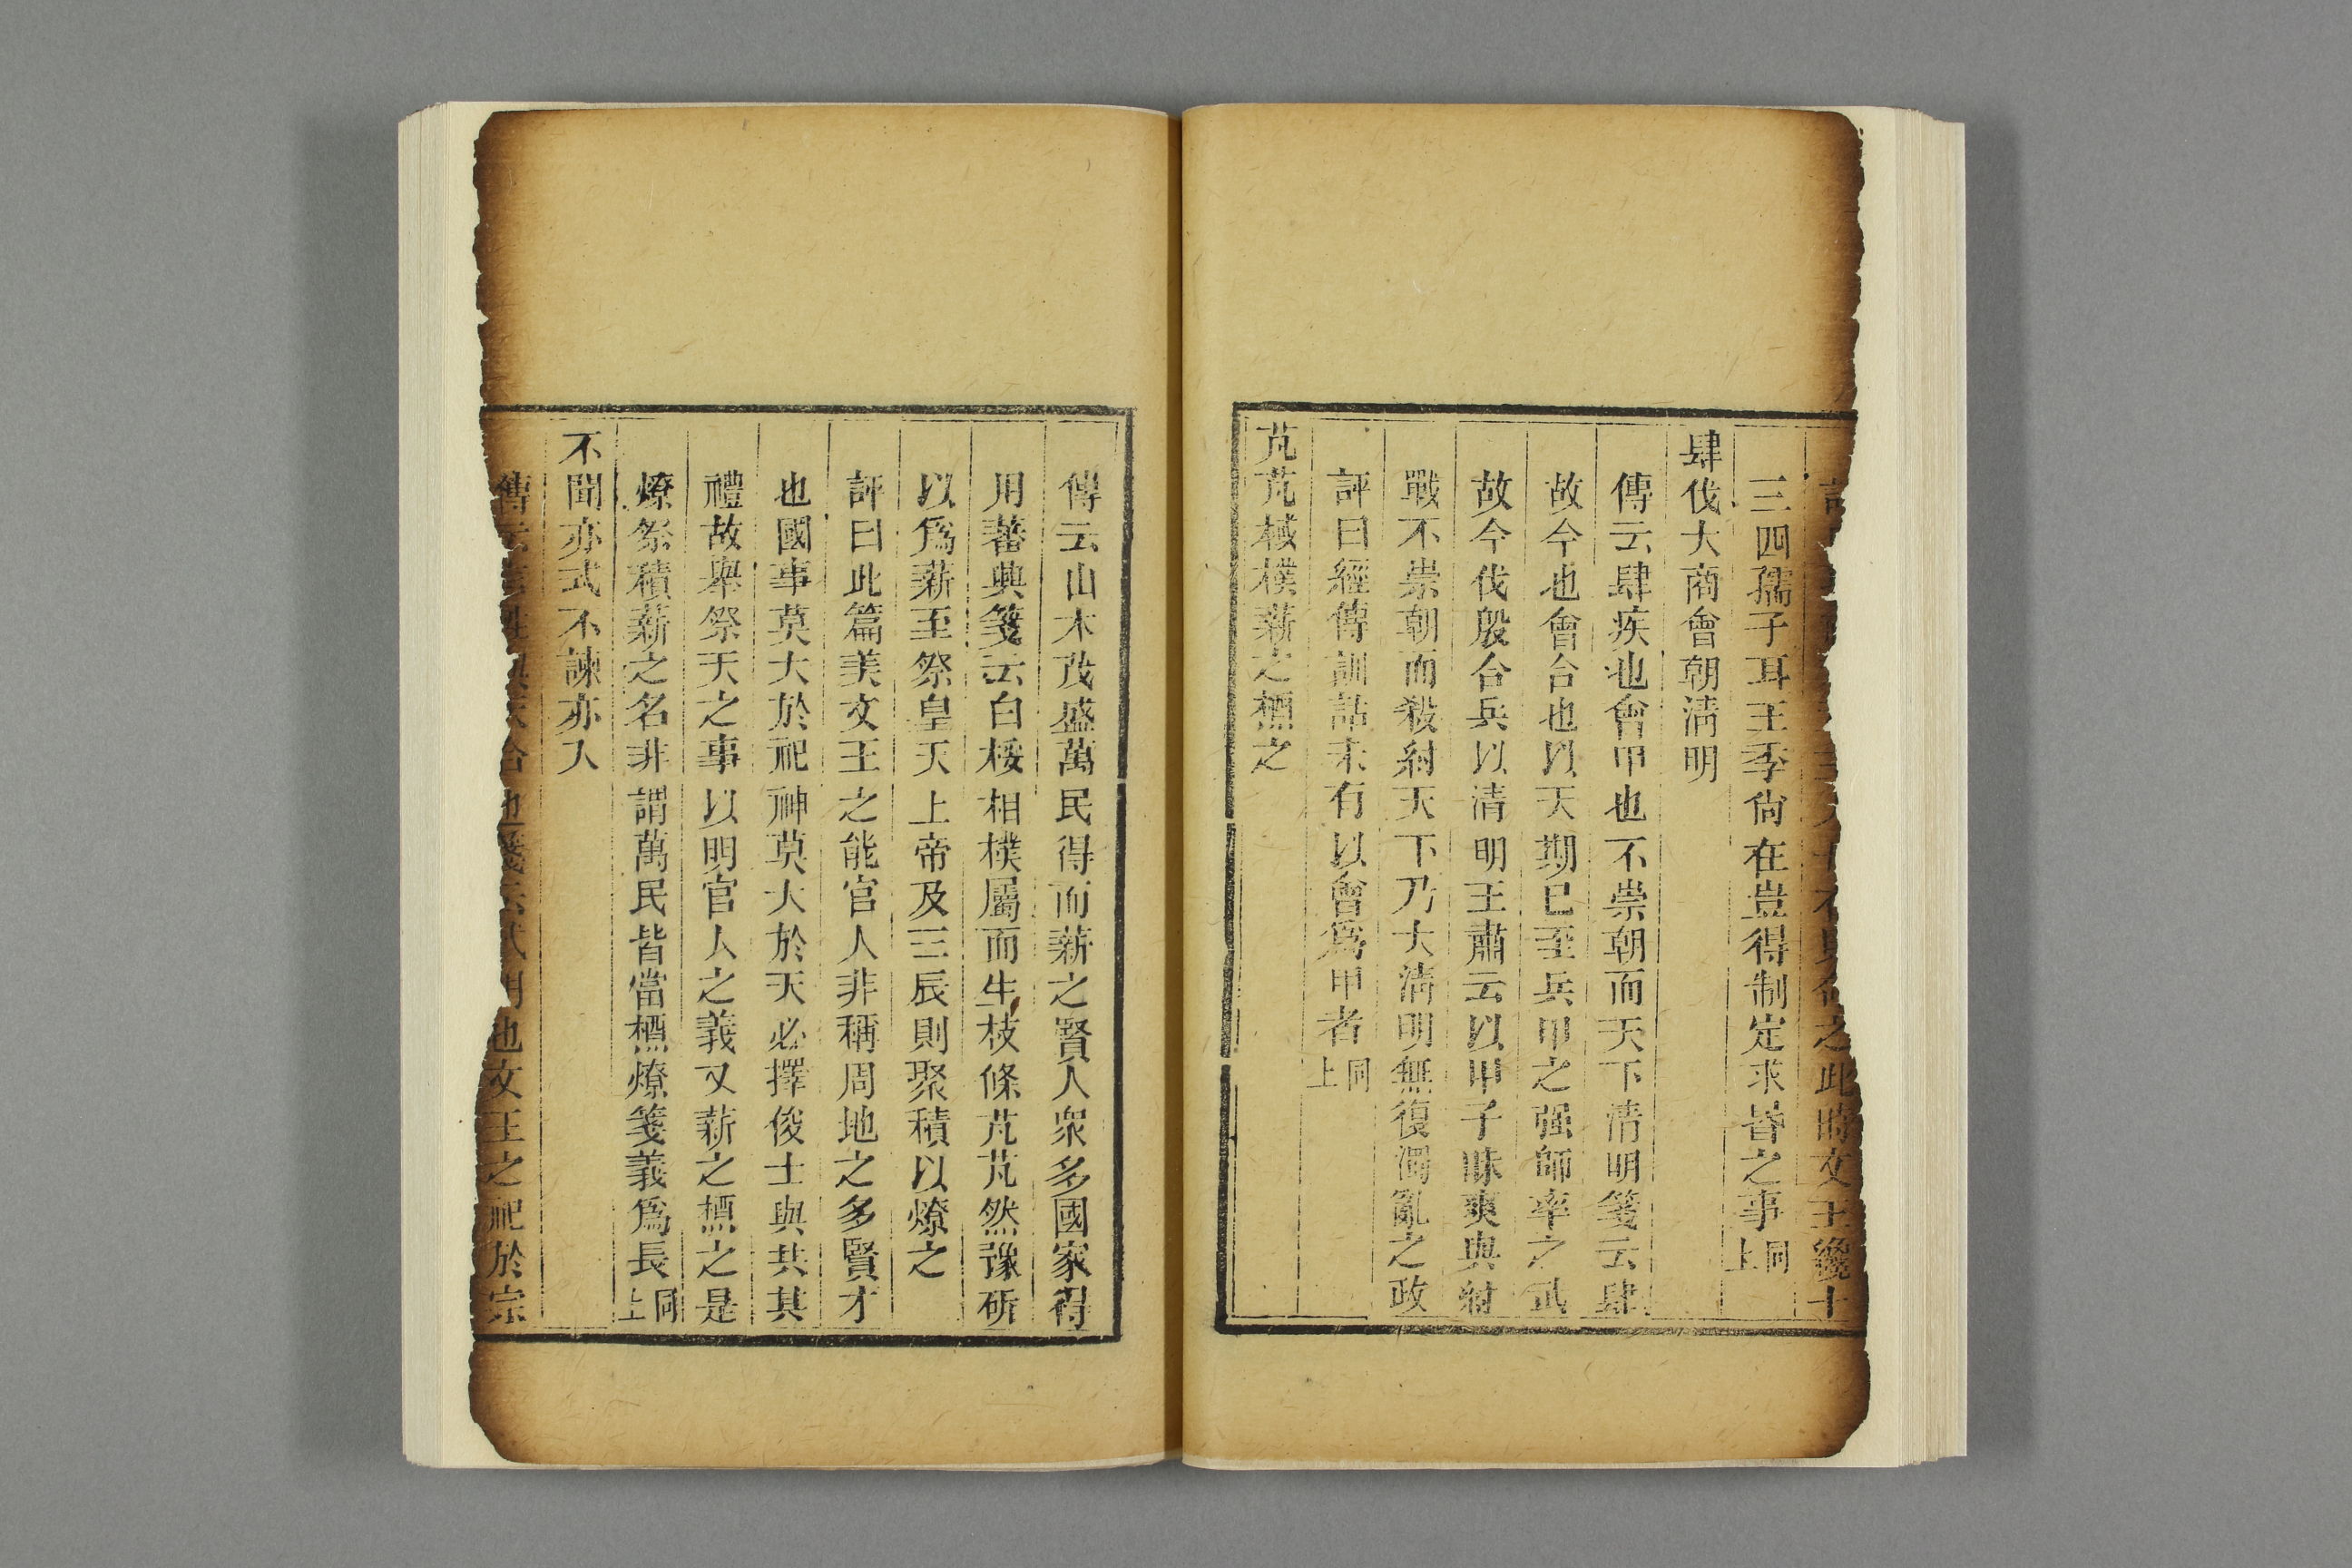 之此時文王纔十
三四孺子耳王季尚在豈得制定求昏之事同上
肆伐大商會朝淸明
傳云肆疾也會甲也不崇朝而天下淸明箋云肆
故今也會合也以天期已至兵甲之强師率之武
故今伐殷合兵以清明王肅云以甲子昧爽與紂
戰不崇朝而殺紂天下乃大淸明無復濁亂之政
評曰經傳訓詁未有以會爲甲者同上
芃芃棫樸薪之槱之
傳云山木茂盛萬民得而薪之賢人衆多國家得
用蕃興箋云白桵相樸屬而生枝條芃芃然豫斫
以爲薪至祭皇天上帝及三辰則聚積以燎之
評曰此篇美文王之能官人非稱周地之多賢才
也國事莫大於祀神莫大於天必擇俊士與共其
禮故舉祭天之事以明官人之義又薪之槱之是
燎祭積薪之名非謂萬民皆當槱燎箋義爲長同上
不聞亦式不諫亦入
傳云也文王之祀於宗